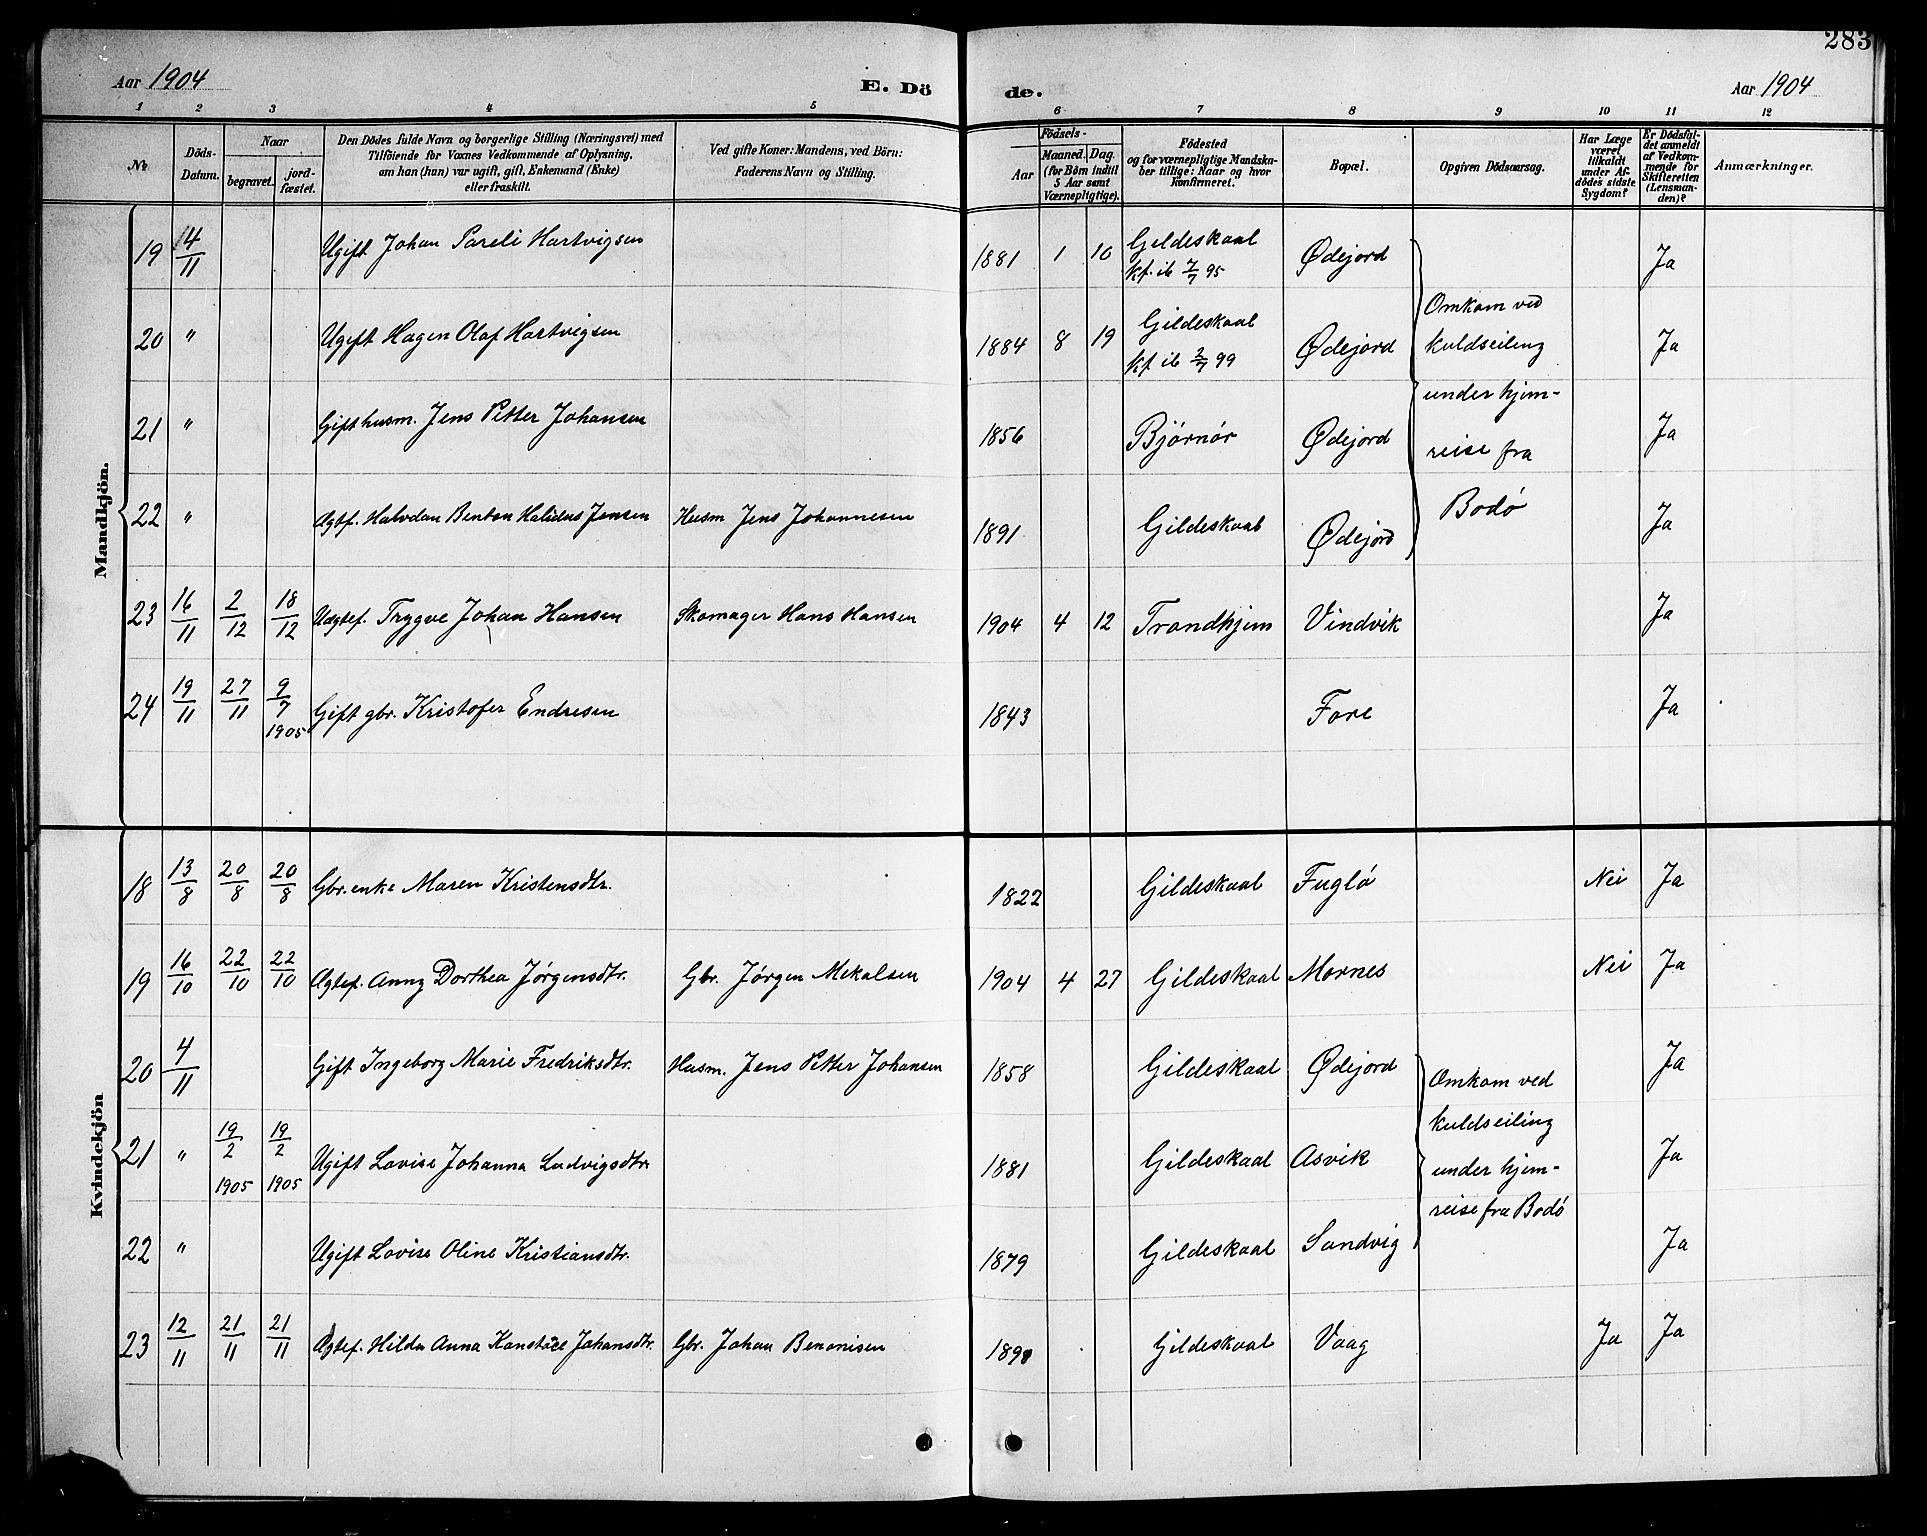 283
Aar 1904
E. Dö
de.
Aar 1904
1 2 3 4 5 6 7 8 9 10 11 12
No
Döds-Datum.
Naar
begravet. jord-fæstet.
Den Dödes fulde Navn og borgerlige Stilling (Næringsvei) med
Tilföiende for Voxnes Vedkommende af Oplysning,
om han (hun) var ugift, gift, Enkemand (Enke)
eller fraskilt.
Ved gifte Koner: Mandens, ved Börn:
Faderens Navn og Stilling.
Födsels-
Aar
Maaned. Dag.
(for Börn indtil
5 Aar samt
Værnepligtige).
Födested
og for værnepligtige Mandska-
ber tillige: Naar og hvor
Konfirmeret.
Bopæl.
Opgiven Dödsaarsag.
Har Læge
været
tilkaldt
under Af-
dödes sidste
Sygdom?
Er Dödsfal-
det anmeldt
af Vedkom-
mende for
Skifteretten
(Lensman-
den)?
Anmærkninger.
Mandkjön.
19 4/11 Ugift Johan Pareli Hartvigsen 1881 1 10 Gildeskaal kf. ib 7/7 95 Ødejord Ja
20 " Ugift Hagen Olaf Hartvigsen 1884 8 19 Gildeskaal kf. ib 2/7 99 Ødejord Ja
21 " Gift husm. Jens Petter Johansen 1856 Bjørnør Ødejord Ja
22 " Ægtef. Halvdan Benton Halidus Jensen Husm Jens Johannesen 1891 Gildeskaal Ødejord Ja
Omkom ved
kuldseiling
under hjem-
reise fra
Bodø
23 16/11 2/12 18/12 Uægtef. Trygve Johan Hansen Skomager Hans Hansen 1904 4 12 Trondhjem Vindvik Ja
24 19/11 27/11 9/7 1905 Gift gbr. Kristofer Endresen 1843 Fore Ja
Kvindekjön
18 13/8 20/8 20/8 Gbr. enke Maren Kristensdtr. 1822 Gildeskaal Fuglø Nei Ja
19 16/10 22/10 22/10 Ægtef. Anny Dorthea Jørgensdtr. Gbr. Jørgen Mekalsen 1904 4 27 Gildeskaal Mornes Nei Ja
20 4/11 Gift Ingeborg Marie Fredriksdtr. Husm. Jens Petter Johansen 1858 Gildeskaal Ødejord Ja
21 " 19/2 1905 19/2 1905 Ugift Lovise Johanna Ludvigsdtr. 1881 Gildeskaal Asvik Ja
22 " Ugift Lovise Oline Kristiansdtr. 1879 Gildeskaal Sandvig Ja
Omkom ved
kuldseiling
under hjem-
reise fra Bodø
23 12/11 21/11 21/11 Ægtef. Hilda Anna Konstace Johansdtr. Gbr. Johan Benonisen Gildeskaal Vaag Ja Ja